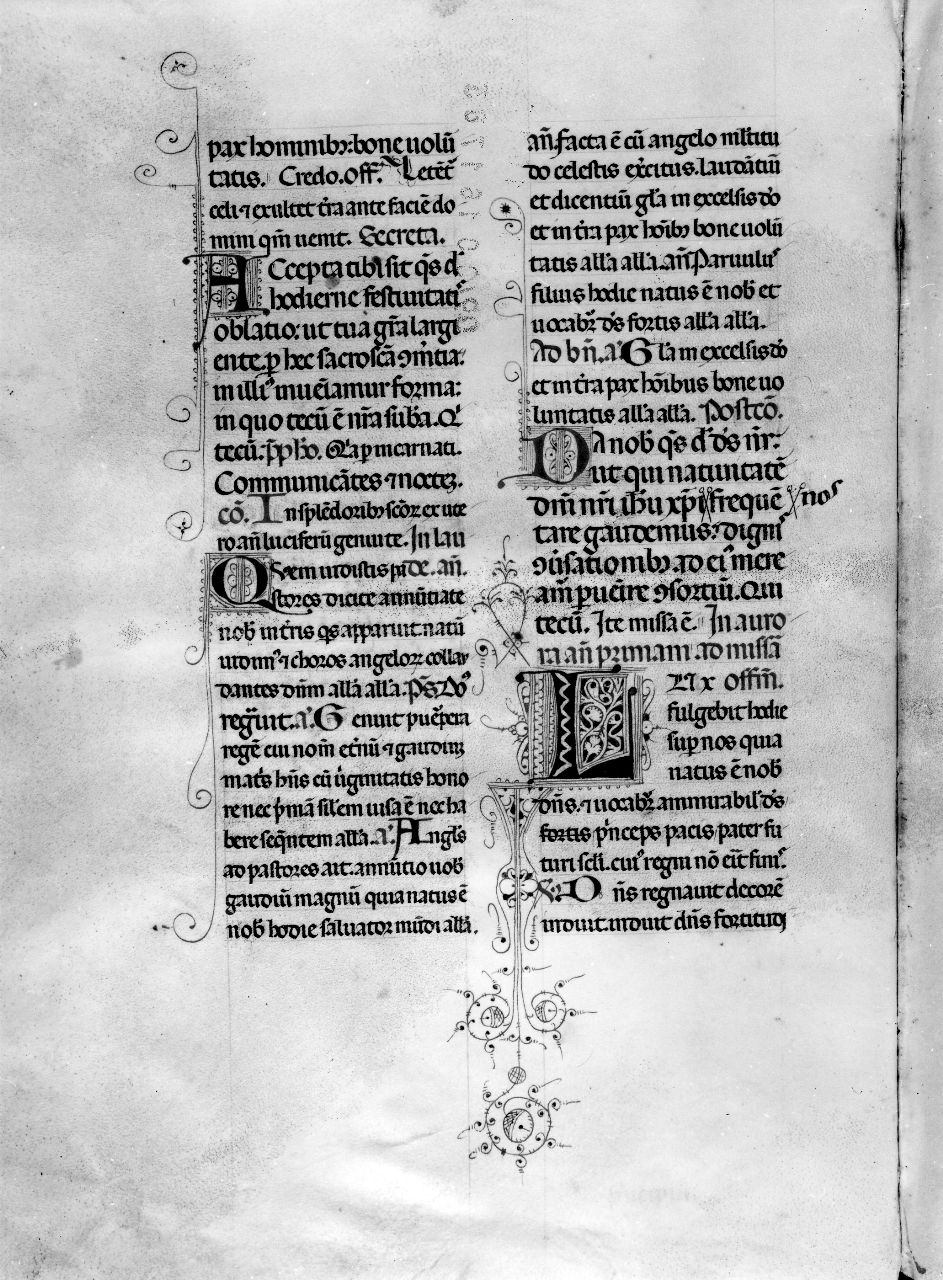 pax hominibꝫ bone uolū
tatis. Credo. Off. Letēt̄
celi ⁊ exultet t̄ra ante faciē do
mini qm̄ uenit. Secreta.
Accepta tibi sit q̄s d̄
hodierne festiuitatis
oblatio: ut tua gr̄a largi
ente. ꝑ hec sacroscā ꝯm̄tia:
in illiꝰ inueniamur forma:
in quo tecū ē nr̄a sub̄a. Q
tecū. p̄p ho. Qa p incarnati.
Communicātes ⁊ noctez.
cō. In splēdoribꝫ scōꝝ ex ute
ro an̄ luciferū genui te. In lau
Quem uidistis. an̄.
pastores dicite annūtiate
nob̄ in t̄ris q̄s apparuit natū
uidimꝰ ⁊ choros angeloꝝ collau
dantes dn̄m all̄a all̄a. Ps̄. Dn̄s
regn̄uit. a. Genuit puēpera
regē cui nom̄ et̄nū ⁊ gaudiuꝫ
mat̄s hn̄s cū uirginitatis hono
re nec p̄mā sil̄em uisa ē nec ha
bere seqn̄tem all̄a. a. Angl̄s
ad pastores ait. annūtio uob̄
gaudiū magnū quia natus ē
nob̄ hodie saluator mūdi all̄a.
an̄. facta ē cū angelo ml̄titu
do celestis exc̄itus. laudātiū
et dicentiū gl̄a in excelsis dō
et in t̄ra pax hōibꝫ bone uolū
tatis all̄a all̄a. an̄. Paruulus
filius hodie natus ē nob̄ et
uocabit̄ ds̄ fortis all̄a all̄a.
Ad bn̄. a. Gl̄a in excelsis dō
et in t̄ra pax hōibus bone uo
luntatis all̄a all̄a. Postcō.
Da nob̄ q̄s d̄ ds̄ nr̄:
ut qui natiuitatē
dn̄i nr̄i ih̄u xp̄i frequē nos
tare gaudemus: dignis
ꝯuersatiōibꝫ ad eiꝰ mere
am̄ puēire ꝯsortiū. Qui
tecū. Ite missa ē. In auro
ra an̄ primam ad missā
Lux offm̄.
fulgebit hodie
sup nos quia
natus ē nob̄
dn̄s. ⁊ uocabit̄ ammirabil̄ ds̄
fortis p̄nceps pacis pater fu
turi scl̄i. cuiꝰ regni nō eīt finis.
Dn̄s regnauit decorē
induit. induit dn̄s fortitudi